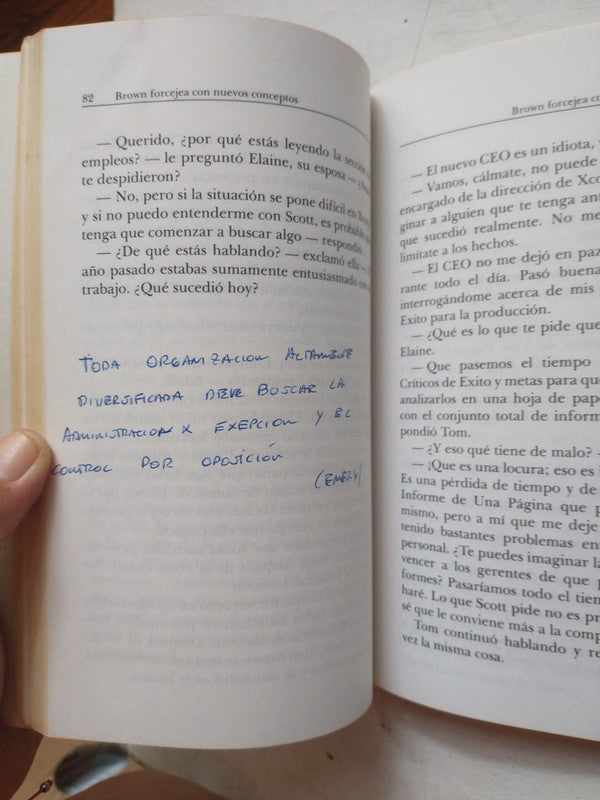 82 Brown forcejea con nuevos conceptos
— Querido, ¿por qué estás leyendo la sección
empleos? — le preguntó Elaine, su esposa —
te despidieron?
— No, pero si la situación se pone difícil en
y si no puedo entenderme con Scott, es probable
tenga que comenzar a buscar algo — respondió
— ¿De qué estás hablando? — exclamó ella —
año pasado estabas sumamente entusiasmado
trabajo. ¿Qué sucedió hoy?
TODA ORGANIZACION ALTAMENTE
DIVERSIFICADA DEVE BUSCAR LA
ADMINISTRACION X EXEPCION Y EL
CONTROL POR OPOSICIÓN
(EMERY)
Brown forcejea
— El nuevo CEO es un idiota,
— Vamos, cálmate, no puede
encargado de la dirección de
ginar a alguien que te tenga
que sucedió realmente. No
limítate a los hechos.
— El CEO no me dejó en paz
rante todo el día. Pasó
interrogándome acerca de mis
Exito para la producción.
— ¿Qué es lo que te pide
Elaine.
— Que pasemos el tiempo
Críticos de Exito y metas para
analizarlos en una hoja de
con el conjunto total de
pondió Tom.
— ¿Y eso qué tiene de malo? –
— ¡Que es una locura; eso es
Es una pérdida de tiempo y de
Informe de Una Página que
mismo, pero a mí que me deje
tenido bastantes problemas en
personal. ¿Te puedes imaginar
vencer a los gerentes de que
formes? Pasaríamos todo el
haré. Lo que Scott pide no es
sé que le conviene más a la
Tom continuó hablando y
vez la misma cosa.